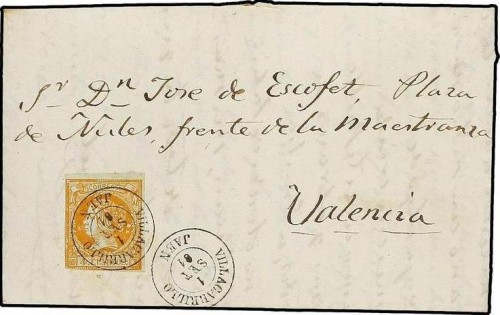 Sr Dn Jose de Escofet, Plaza
de Nules, frente de la Maestranza
Valencia
CORREOS
VILLACARRILLO
1
SET
61
JAEN
VILLACARRILLO
1
SET
61
JAEN